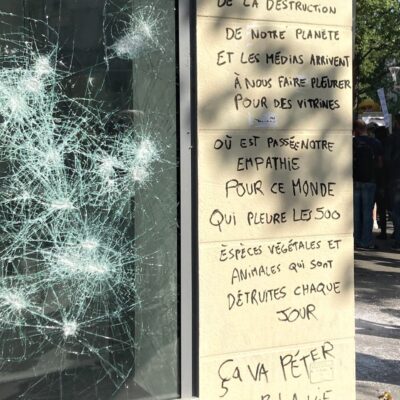 DE LA DESTRUCTION
DE NOTRE PLANÈTE
ET LES MÉDIAS ARRIVENT
À NOUS FAIRE PLEURER
POUR DES VITRINES
OÙ EST PASSÉE NOTRE
EMPATHIE
POUR CE MONDE
QUI PLEURE LES 500
ESPÈCES VÉGÉTALES ET
ANIMALES QUI SONT
DÉTRUITES CHAQUE
JOUR
ÇA VA PÉTER